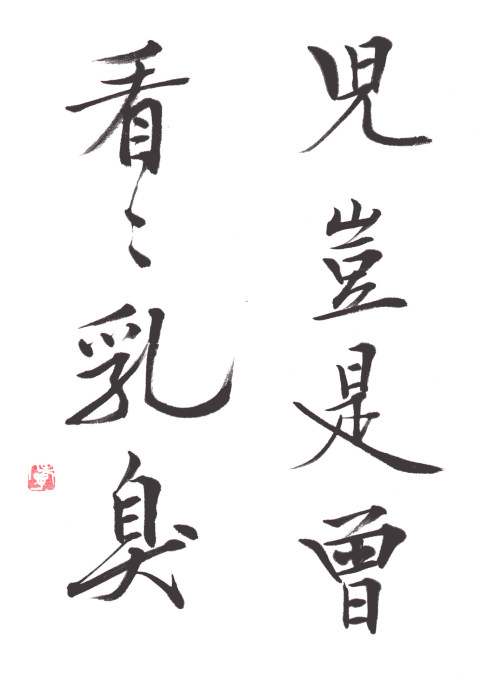 児豈是曽
看々乳臭